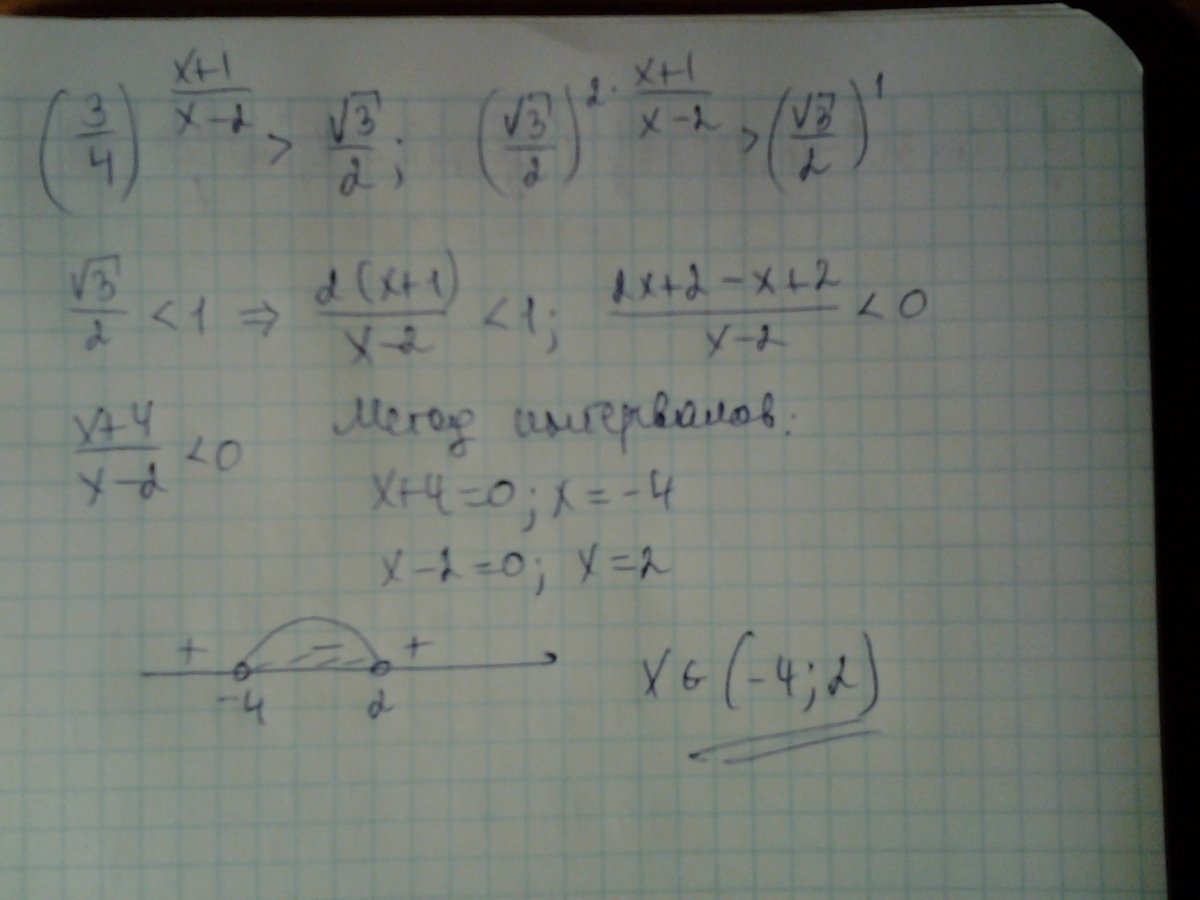 (3/4)^((x+1)/(x-2)) > √3/2; (√3/2)^(2·(x+1)/(x-2)) > (√3/2)^1
√3/2 < 1 ⇒ 2(x+1)/(x-2) < 1; (2x+2-x+2)/(x-2) < 0
(x+4)/(x-2) < 0 Метод интервалов:
x+4=0; x=-4
x-2=0; x=2
+ - +
-4 2 x ∈ (-4; 2)